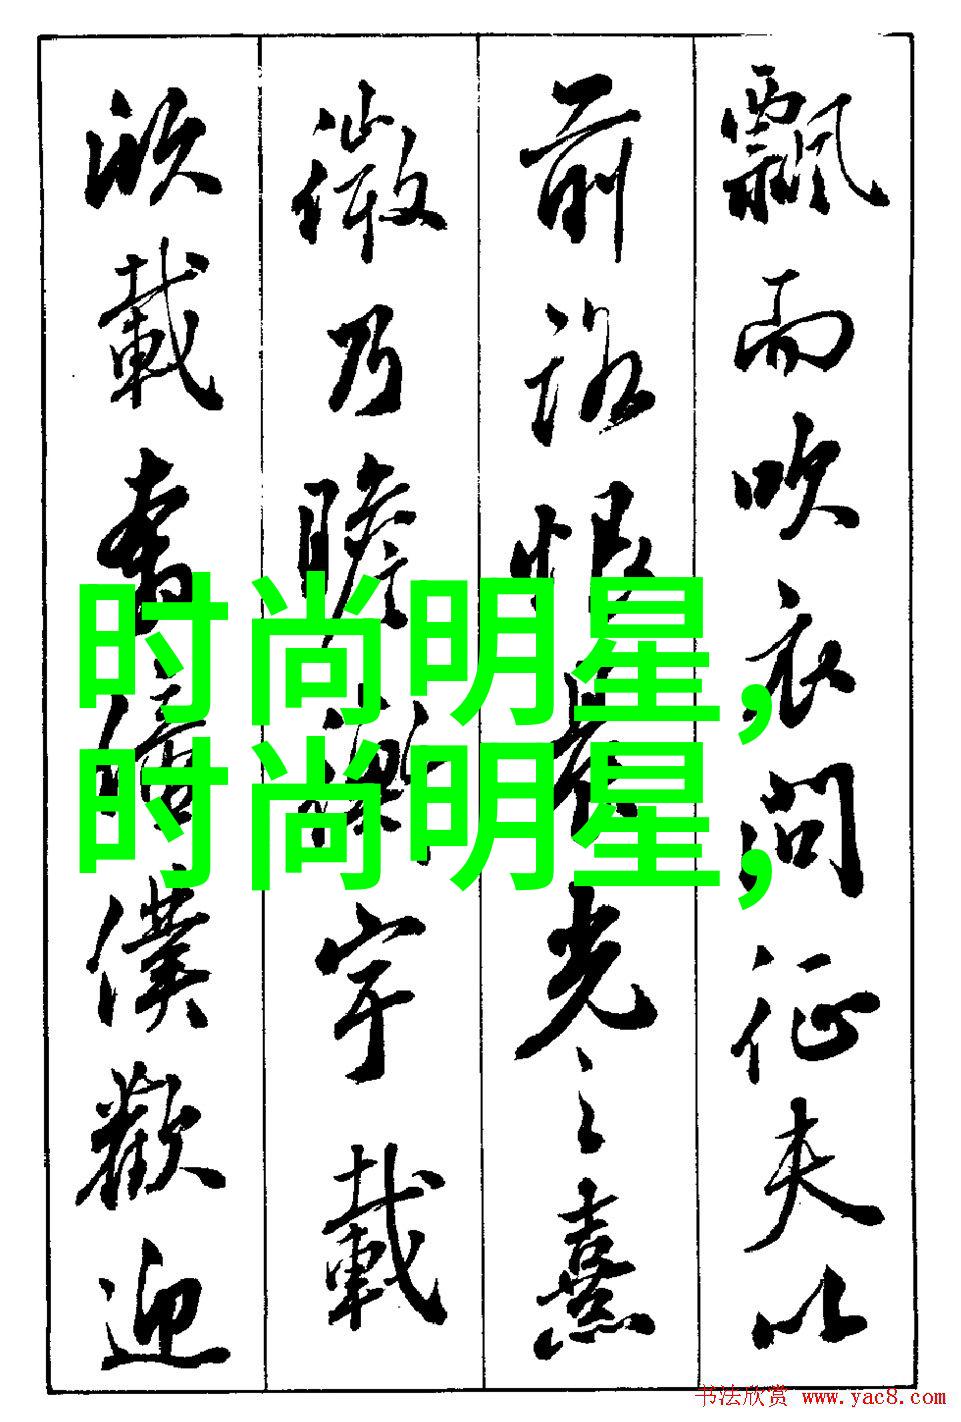 飘而吹衣问征夫以
前路恨晨光之熹
微乃瞻衡宇载
欣载奔僮仆欢迎
时尚明星,
时尚明星,
书法欣赏 www.yac8.com